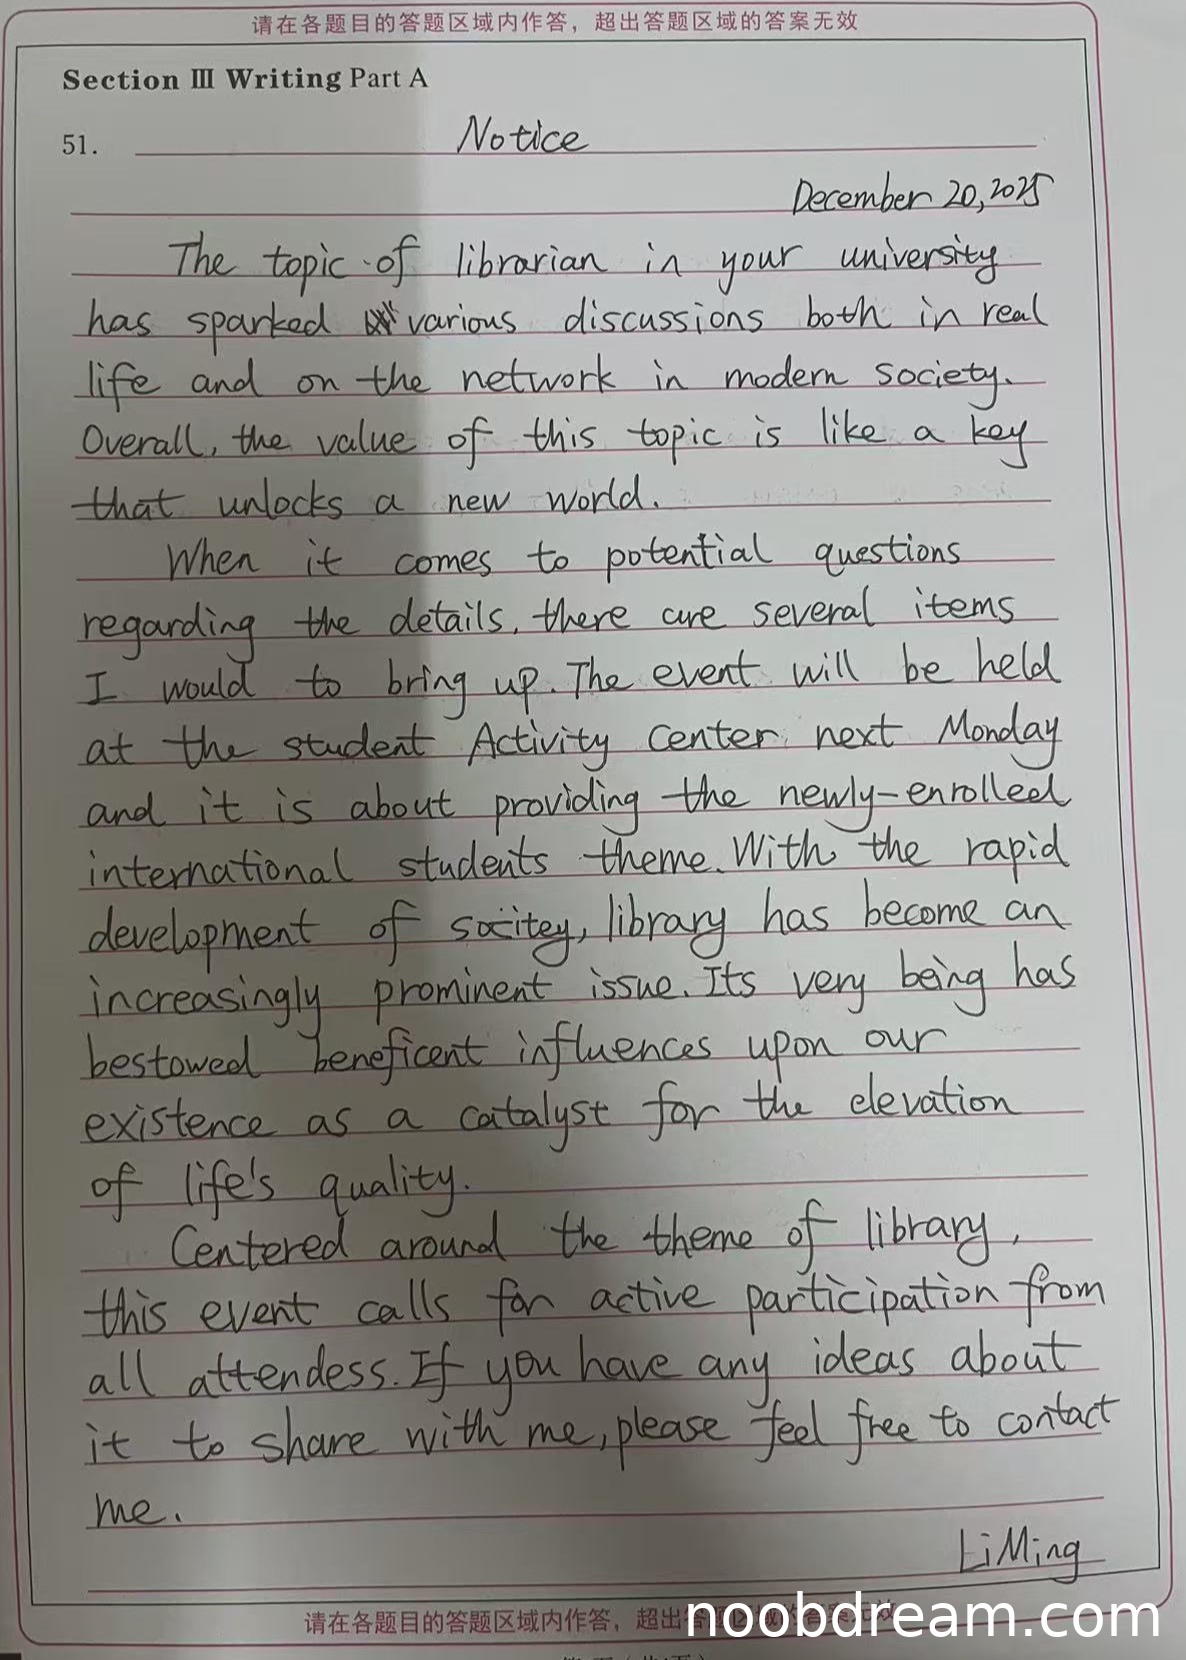 请在各题目的答题区域内作答，超出答题区域的答案无效
Section Ⅲ Writing Part A
51. Notice
December 20, 2025
The topic of librarian in your university
has sparked various discussions both in real
life and on the network in modern society.
Overall, the value of this topic is like a key
that unlocks a new world.
When it comes to potential questions
regarding the details, there are several items
I would to bring up. The event will be held
at the student Activity Center next Monday
and it is about providing the newly-enrolled
international students theme. With the rapid
development of socitey, library has become an
increasingly prominent issue. Its very being has
bestowed beneficent influences upon our
existence as a catalyst for the elevation
of life's quality.
Centered around the theme of library,
this event calls for active participation from
all attendess. If you have any ideas about
it to share with me, please feel free to contact
me.
Li Ming
请在各题目的答题区域内作答，超出答题区域的答案无效
noobdream.com